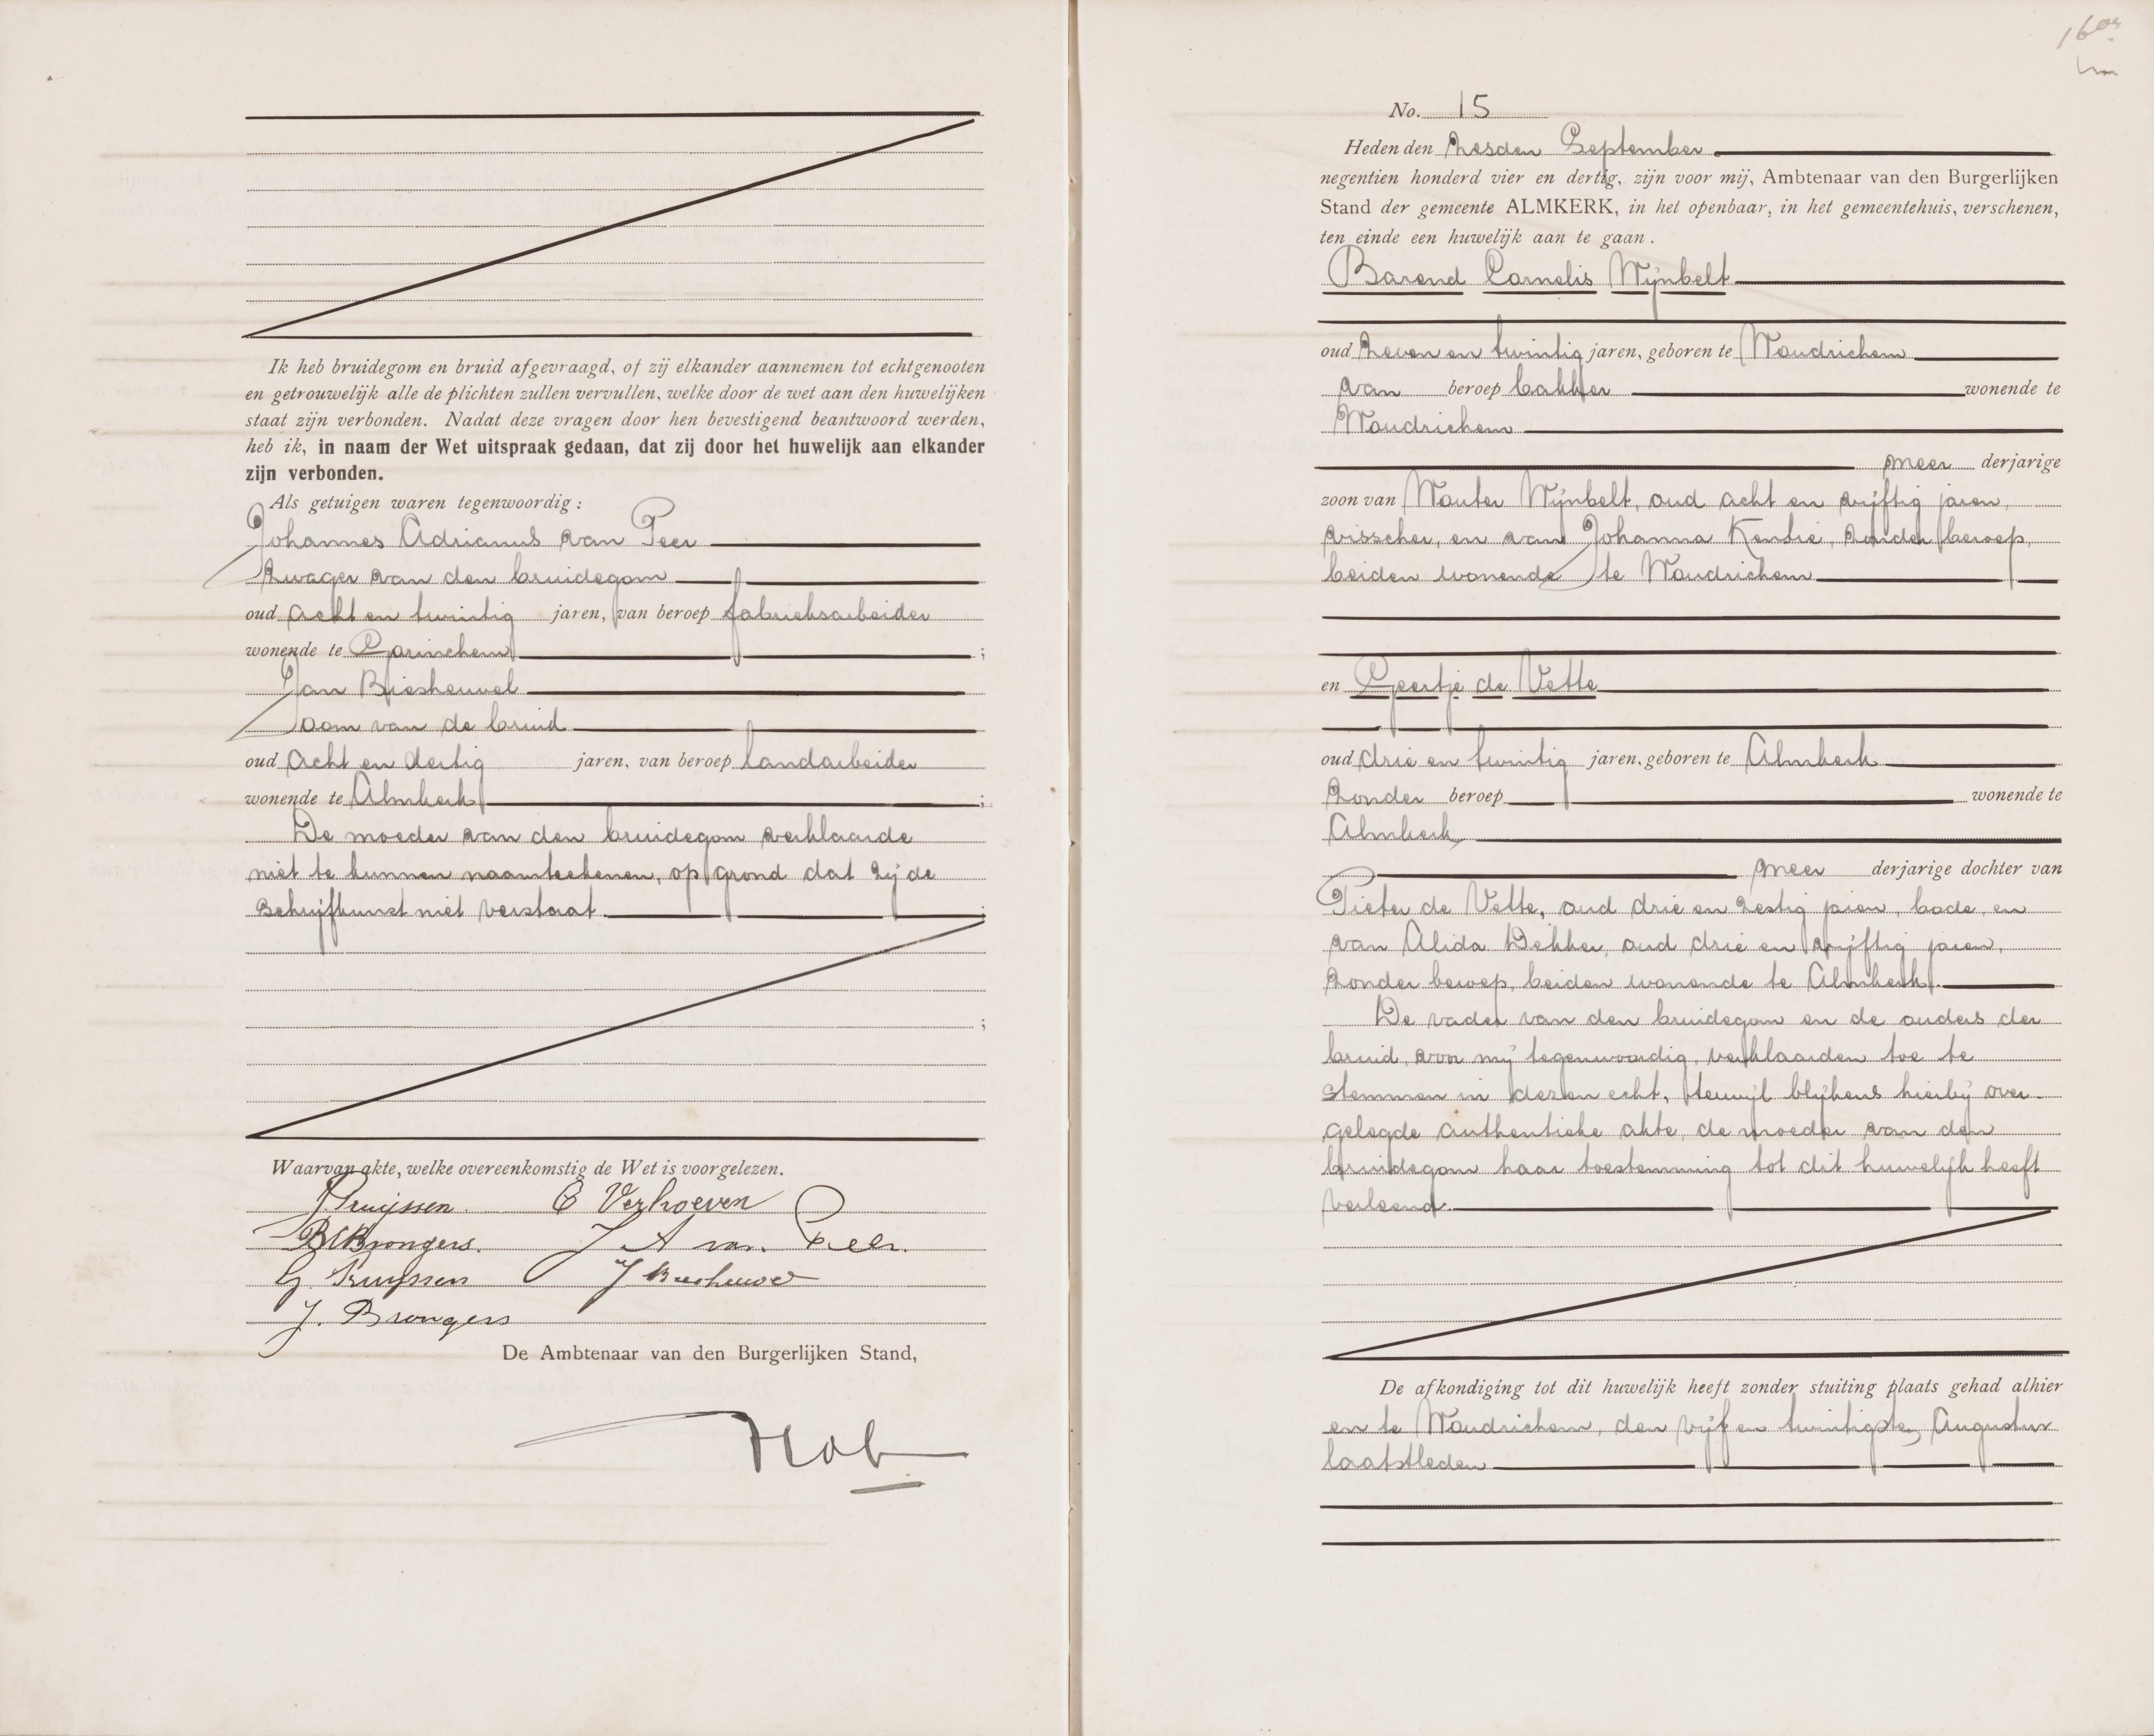 Ik heb bruidegom en bruid afgevraagd, of zij elkander aannemen tot echtgenooten
en getrouwelijk alle de plichten zullen vervullen, welke door de wet aan den huwelijken
staat zijn verbonden. Nadat deze vragen door hen bevestigend beantwoord werden,
heb ik, in naam der Wet uitspraak gedaan, dat zij door het huwelijk aan elkander
zijn verbonden.
Als getuigen waren tegenwoordig:
Johannes Adrianus van Peer
zwager van den bruidegom
oud acht en twintig jaren, van beroep fabrieksarbeider
wonende te Gorinchem;
Jan Biesheuvel
oom van de bruid
oud acht en dertig jaren, van beroep landarbeider
wonende te Almkerk;
De moeder van den bruidegom verklaarde
niet te kunnen naamteekenen, op grond dat zij de
schrijfkunst niet verstaat
;
Waarvan akte, welke overeenkomstig de Wet is voorgelezen.
Pruijssen. C Verhoeven
Brongers. J A van Peer.
G. Pruijssen J Biesheuvel
J. Brongers
De Ambtenaar van den Burgerlijken Stand,
No. 15
Heden den zesden September
negentien honderd vier en dertig, zijn voor mij, Ambtenaar van den Burgerlijken
Stand der gemeente ALMKERK, in het openbaar, in het gemeentehuis, verschenen,
ten einde een huwelijk aan te gaan.
Barend Cornelis Wijnbelt
oud zeven en twintig jaren, geboren te Woudrichem
van beroep bakker wonende te
Woudrichem
meer derjarige
zoon van Wouter Wijnbelt, oud acht en vijftig jaren,
visscher, en van Johanna Kentie, zonder beroep,
beiden wonende te Woudrichem
en Geertje de Vette
oud drie en twintig jaren, geboren te Almkerk
zonder beroep wonende te
Almkerk
meer derjarige dochter van
Pieter de Vette, oud drie en zestig jaren, bode, en
van Alida Dekker, oud drie en vijftig jaren,
zonder beroep, beiden wonende te Almkerk.
De vader van den bruidegom en de ouders der
bruid, voor mij tegenwoordig, verklaarden toe te
stemmen in dezen echt, terwijl blijkens hierbij over-
gelegde authentieke akte, de moeder van den
bruidegom haar toestemming tot dit huwelijk heeft
verleend.
De afkondiging tot dit huwelijk heeft zonder stuiting plaats gehad alhier
en te Woudrichem, den vijf en twintigsten Augustus
laatstleden